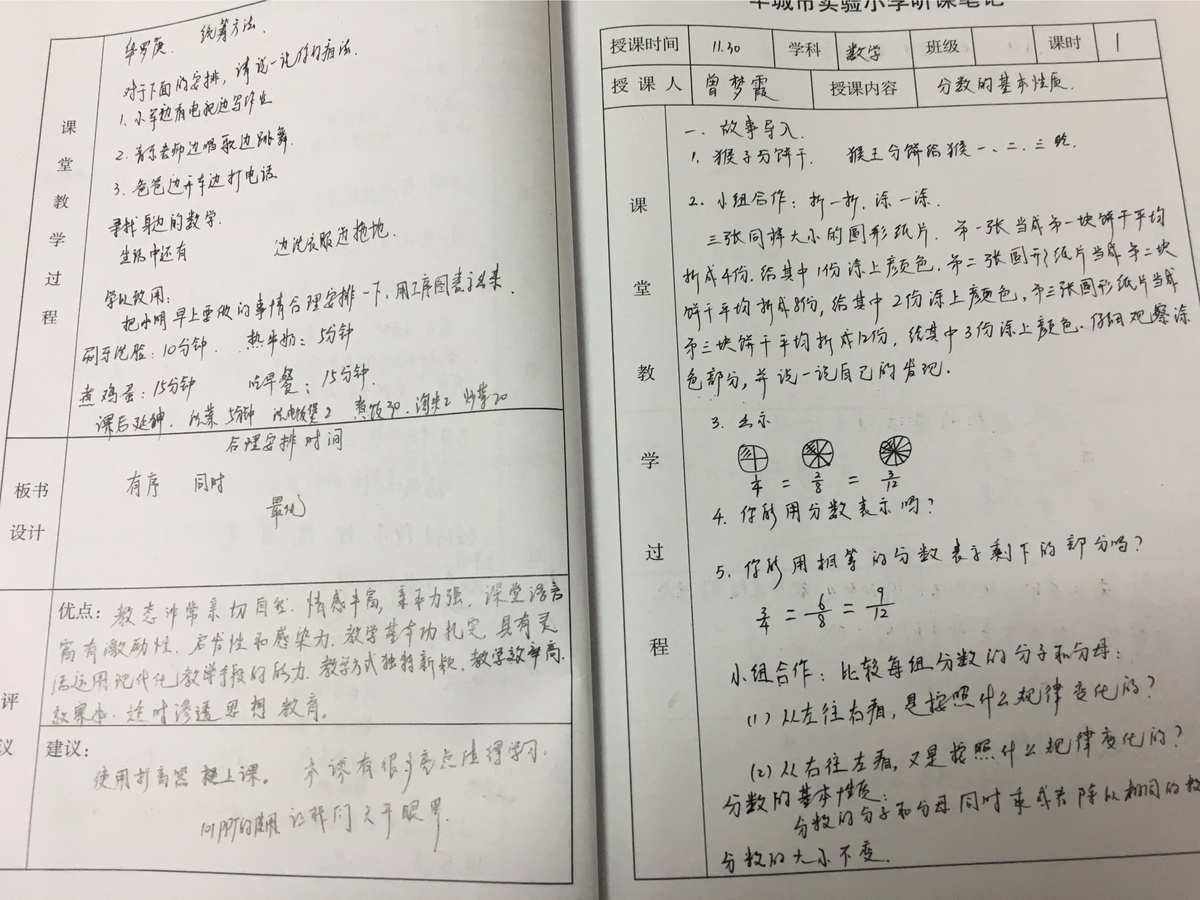 华罗庚 统筹方法.
对于下面的安排,请说一说你的看法.
1.小军边看电视边写作业
2.音乐老师边唱歌边跳舞.
3.爸爸边开车边打电话
寻找身边的数学.
生活中还有 边洗衣服边拖地.
学以致用:
把小明早上要做的事情合理安排一下,用工序图表示出来.
刷牙洗脸:10分钟. 热牛奶:5分钟
煮鸡蛋:15分钟 吃早餐:15分钟.
课后延伸. 洗菜5分钟 洗电饭煲2 煮饭30. 淘米2 炒菜20
课堂教学过程
合理安排时间
有序 同时
最优
板书设计
优点:教态非常亲切自然.情感丰富,亲和力强.课堂语言
富有激励性.启发性和感染力.教学基本功扎实.具有灵
活运用现代化教学手段的能力.教学方式独特新颖.教学效率高.
效果好.适时渗透思想教育.
评议
建议:
使用扩音器上课。本课有很多亮点值得学习.
PPT的使用让我们大开眼界.
城市实验小学听课笔记
授课时间 11.30 学科 数学 班级 课时 1
授课人 曾梦霞 授课内容 分数的基本性质.
一.故事导入.
1.猴子分饼干. 猴王分饼给猴一、二、三吃.
2.小组合作:折一折.涂一涂.
三张同样大小的圆形纸片.第一张当成第一块饼干平均
折成4份.给其中1份涂上颜色.第二张圆形纸片当成第二块
饼干平均折成8份,给其中2份涂上颜色,第三张圆形纸片当成
第三块饼干平均折成12份,给其中3份涂上颜色.仔细观察涂
色部分,并说一说自己的发现.
3.出示
1/4 = 2/8 = 3/12
4.你能用分数表示吗?
5.你能用相等的分数表示剩下的部分吗?
3/4 = 6/8 = 9/12
小组合作:比较每组分数的分子和分母:
(1)从左往右看,是按照什么规律变化的?
(2)从右往左看,又是按照什么规律变化的?
分数的基本性质:
分数的分子和分母同时乘或者除以相同的数
分数的大小不变.
课堂教学过程